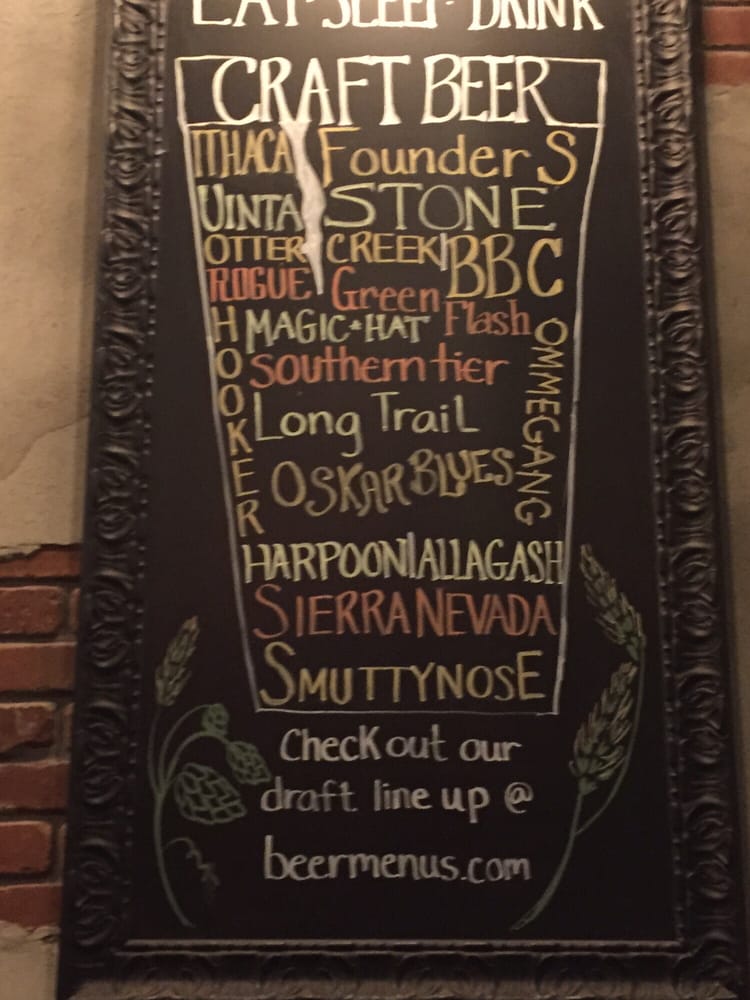 EAT·SLEEP·DRINK
CRAFT BEER
ITHACA FounderS
UINTA STONE
OTTER CREEK BBC
ROGUE Green Flash
HOOKER
MAGIC*HAT
OMMEGANG
Southern tier
Long TraiL
OSKAR BLUES
HARPOON ALLAGASH
SIERRA NEVADA
SMUTTYNOSE
Check out our
draft line up @
beermenus.com